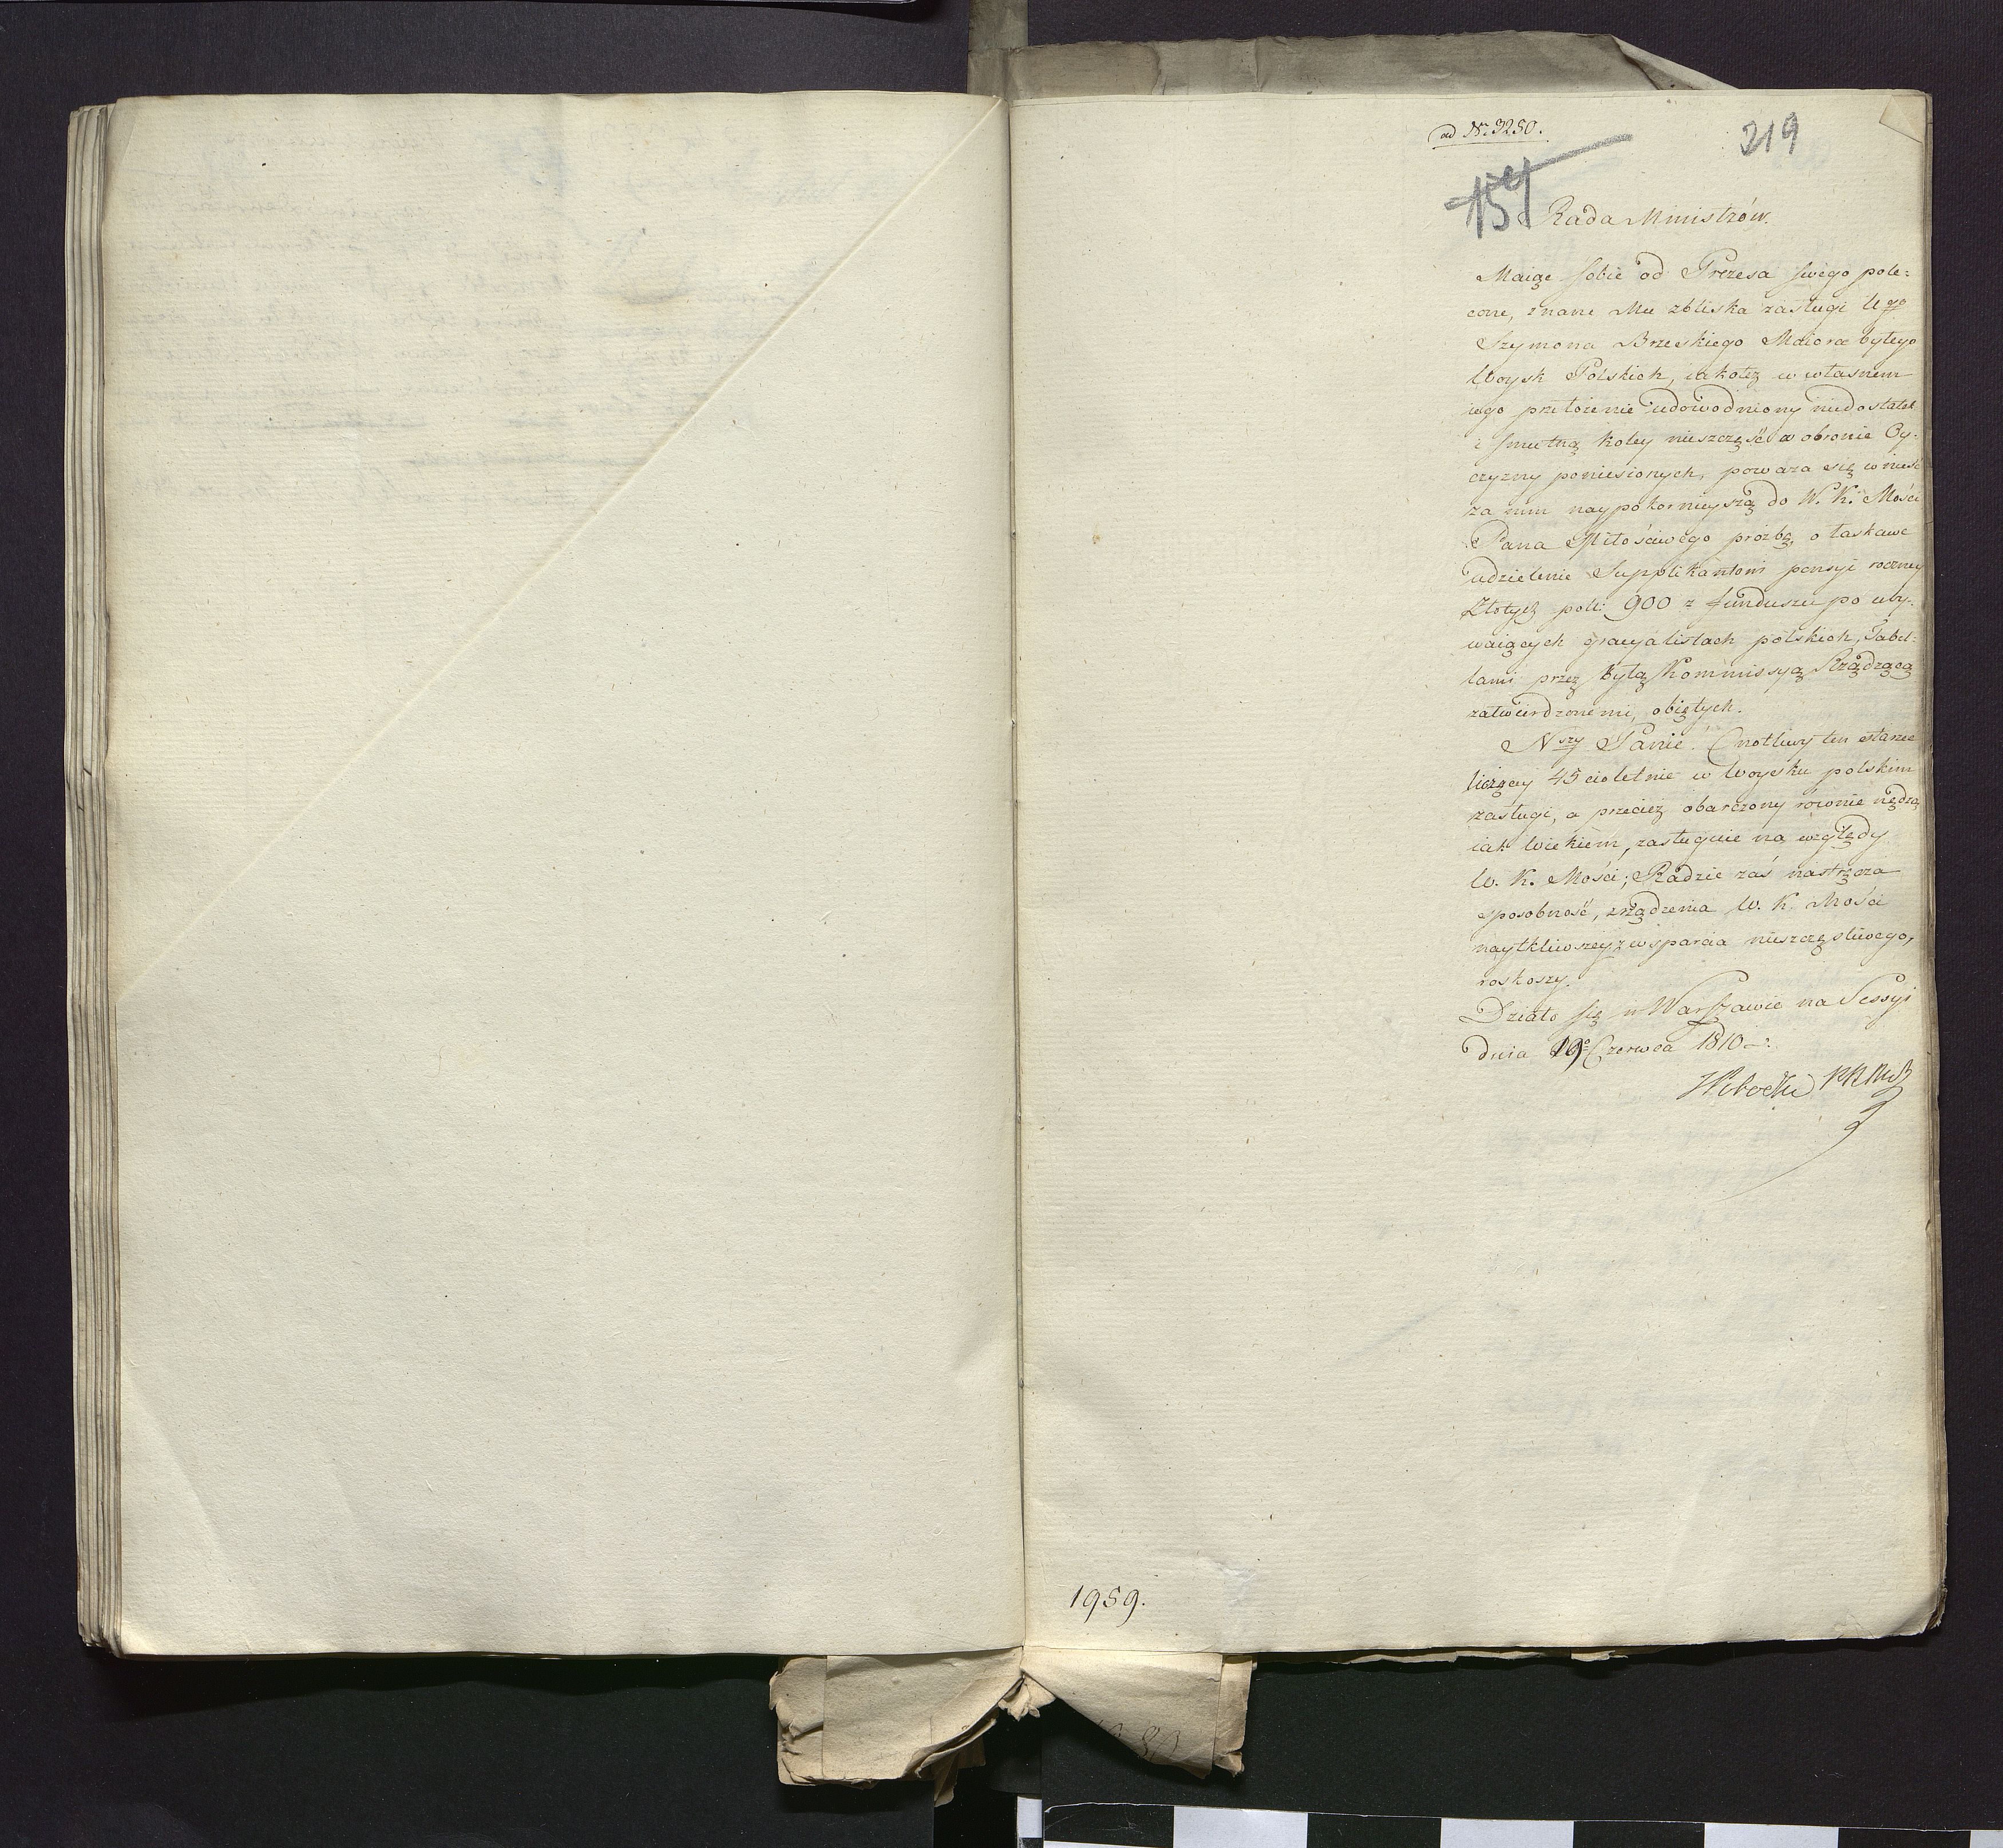 ad Nr. 3250.
219
Rada Ministrów.
Maiąc sobie od Prezesa swego pole:
cone, znane Mu zbliska zasługi Ugo
Szymona Brzeskiego Maiora byłego
Woysk Polskich, iakoteż w własnem
iego przełożenie udowodniony niedostatek
i smutną koley nieszczęść w obronie Oy:
czyzny poniesionych, poważa się wnieść
za nim naypokornieyszą do W. K. Mości
Pana Miłościwego prożbę, o łaskawe
udzielenie Supplikantowi pensyi roczney
Złotych pol: 900 z funduszu po uby:
waiących gracyalistach polskich, Tabel:
lami przez byłą Kommissyą Rządzącą
zatwierdzonemi, obiętych.
Nszy Panie! Cnotliwy ten starzec
liczący 45cioletnie w Woysku polskim
zasługi, a przecież obarczony równie nędzą
iak wiekiem, zasługuie na względy
W. K. Mości; Radzie zaś nastręcza
sposobność, zrządzenia W. K. Mości
naytkliwszey z wsparcia nieszczęśliwego,
roskoszy.
Działo się w Warszawie na Sessyi
dnia 19o Czerwca 1810
1959.